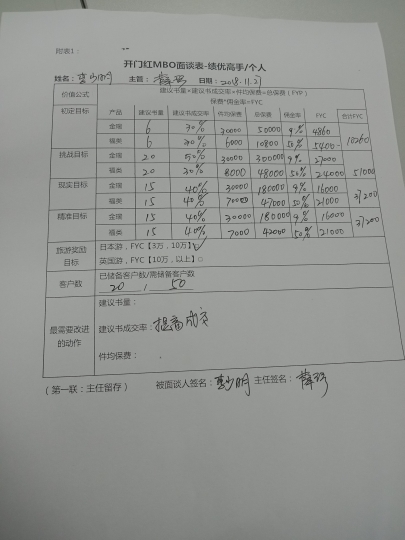 附表1:
开门红MBO面谈表-绩优高手/个人
姓名: 主管: 日期: 2018.11.27
价值公式 建议书量*建议书成交率*件均保费=总保费(FYP)
保费*佣金率=FYC
初定目标 产品 建议书量 建议书成交率 件均保费 总保费 佣金率 FYC 合计FYC
金瑞 6 30% 30000 50000 9% 4860 10260
福类 6 30% 6000 10800 50% 5400
挑战目标 金瑞 20 50% 30000 300000 9% 27000 51000
福类 20 30% 8000 48000 50% 24000
现实目标 金瑞 15 40% 30000 180000 9% 16000 37200
福类 15 40% 7000 42000 50% 21000
精准目标 金瑞 15 40% 30000 180000 9% 16000 37200
福类 15 40% 7000 42000 50% 21000
旅游奖励目标 日本游,FYC【3万,10万】✓
英国游,FYC【10万,以上】□
客户数 已储备客户数/需储备客户数
20 / 50
是需要改进的动作 建议书量:
建议书成交率: 提高成交
件均保费:
(第一联:主任留存) 被面谈人签名: 主任签名: